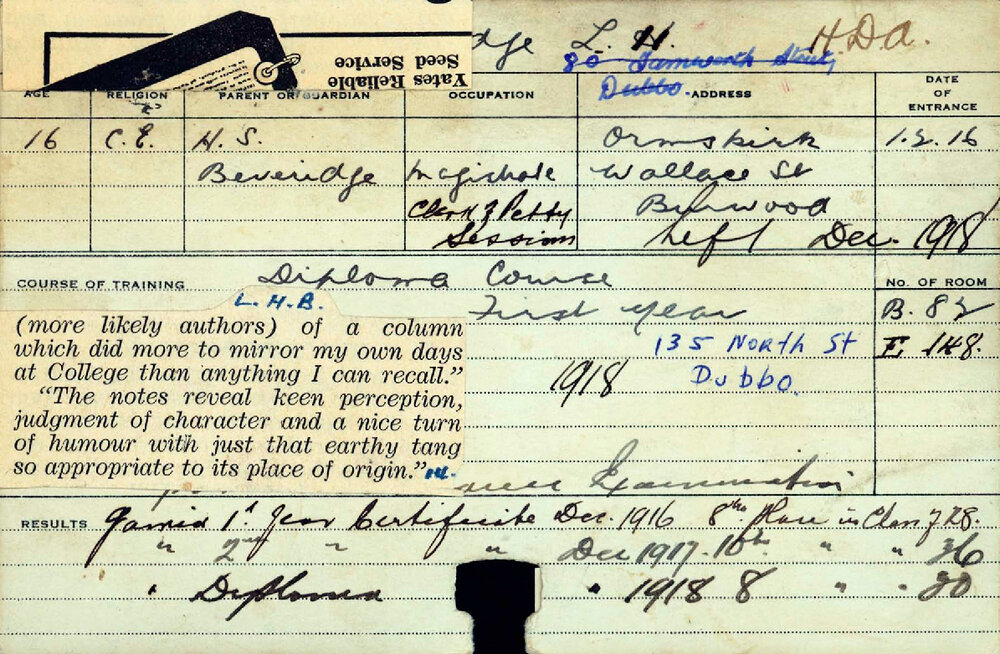 Yates Reliable
Seed Service
dge L. H. H.D.A.
80 Tamworth Street,
Dubbo.
AGE RELIGION PARENT OR GUARDIAN OCCUPATION ADDRESS DATE OF ENTRANCE
16 C.E. H. S. Ormskirk 1.2.16
Beveridge Magistrate Wallace St
Clerk of Petty Burwood
Sessions Left Dec. 1918
COURSE OF TRAINING Diploma Course No. OF ROOM
L.H.B. First Year B. 82
(more likely authors) of a column
which did more to mirror my own days 135 North St E 148.
at College than anything I can recall." 1918 Dubbo.
"The notes reveal keen perception,
judgment of character and a nice turn
of humour with just that earthy tang
so appropriate to its place of origin."
Examination
RESULTS Gained 1st Year Certificate Dec. 1916 8th Place in Class of 28.
" 2nd " " Dec 1917 - 10th " " 36
" Diploma " 1918 8 " " 20